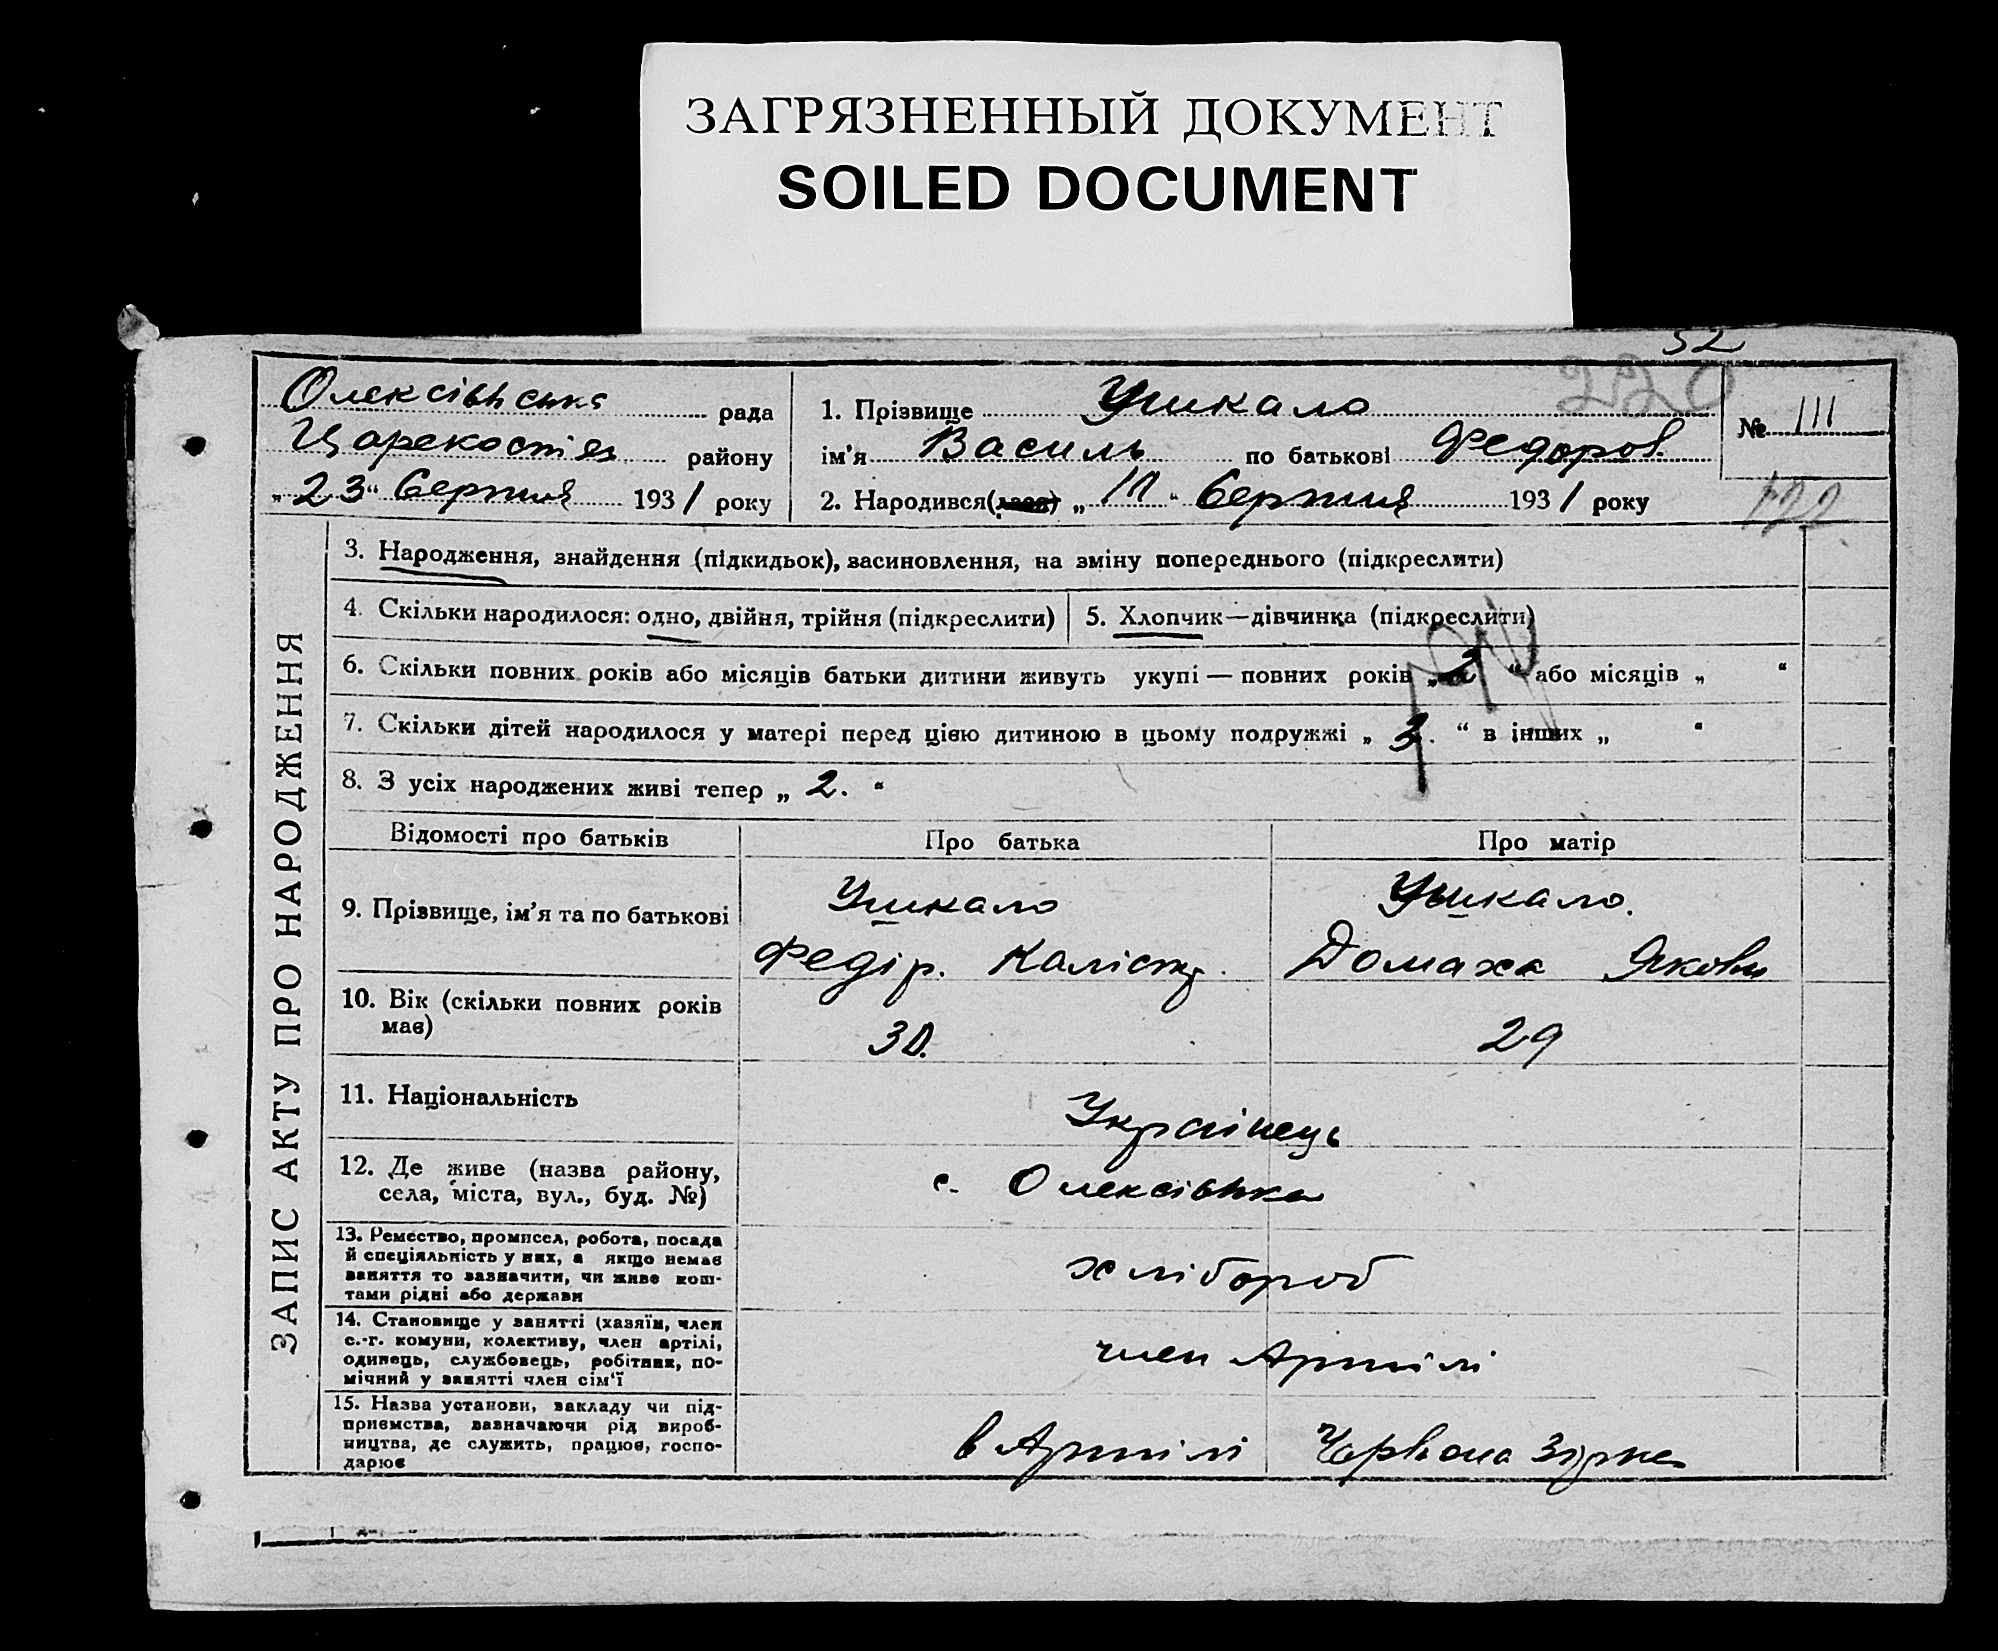 ЗАГРЯЗНЕННЫЙ ДОКУМЕНТ
SOILED DOCUMENT
52
220
Олексівська рада
района
„23“ Серпня 1931 року
1. Прізвище Ушкало
ім'я Василь по батькові Федоров.
2. Народився „ “ Серпня 1931 року
№ 111
122
ЗАПИС АКТУ ПРО НАРОДЖЕННЯ
3. Народження, знайдення (підкидьок), засиновлення, на зміну попереднього (підкреслити)
4. Скільки народилося: одно, двійня, трійня (підкреслити)
5. Хлопчик—дівчинка (підкреслити)
6. Скільки повних років або місяців батьки дитини живуть укупі — повних років „ “ або місяців „ “
7. Скільки дітей народилося у матері перед цією дитиною в цьому подружжі „ 3. “ в інших „ “
8. З усіх народжених живі тепер „ 2. “
Відомості про батьків
Про батька
Про матір
9. Прізвище, ім'я та по батькові
Ушкало
Федір. Калістр.
Ушкало.
Домаха Яковл
10. Вік (скільки повних років
має)
30.
29
11. Національність
Українець
12. Де живе (назва району,
села, міста, вул., буд. №)
с. Олексівка
13. Ремество, промисел, робота, посада
й спеціяльність у них, а якщо немає
заняття то зазначити, чи живе кош-
тами рідні або держави
хлібороб
14. Становище у занятті (хазяїн, член
с.-г. комуни, колективу, член артілі,
одинець, службовець, робітник, по-
мічний у занятті член сім'ї
член Артілі
15. Назва установи, закладу чи під-
приємства, зазначаючи рід вироб-
ництва, де служить, працює, госпо-
дарює
в Артілі Червона Зірка